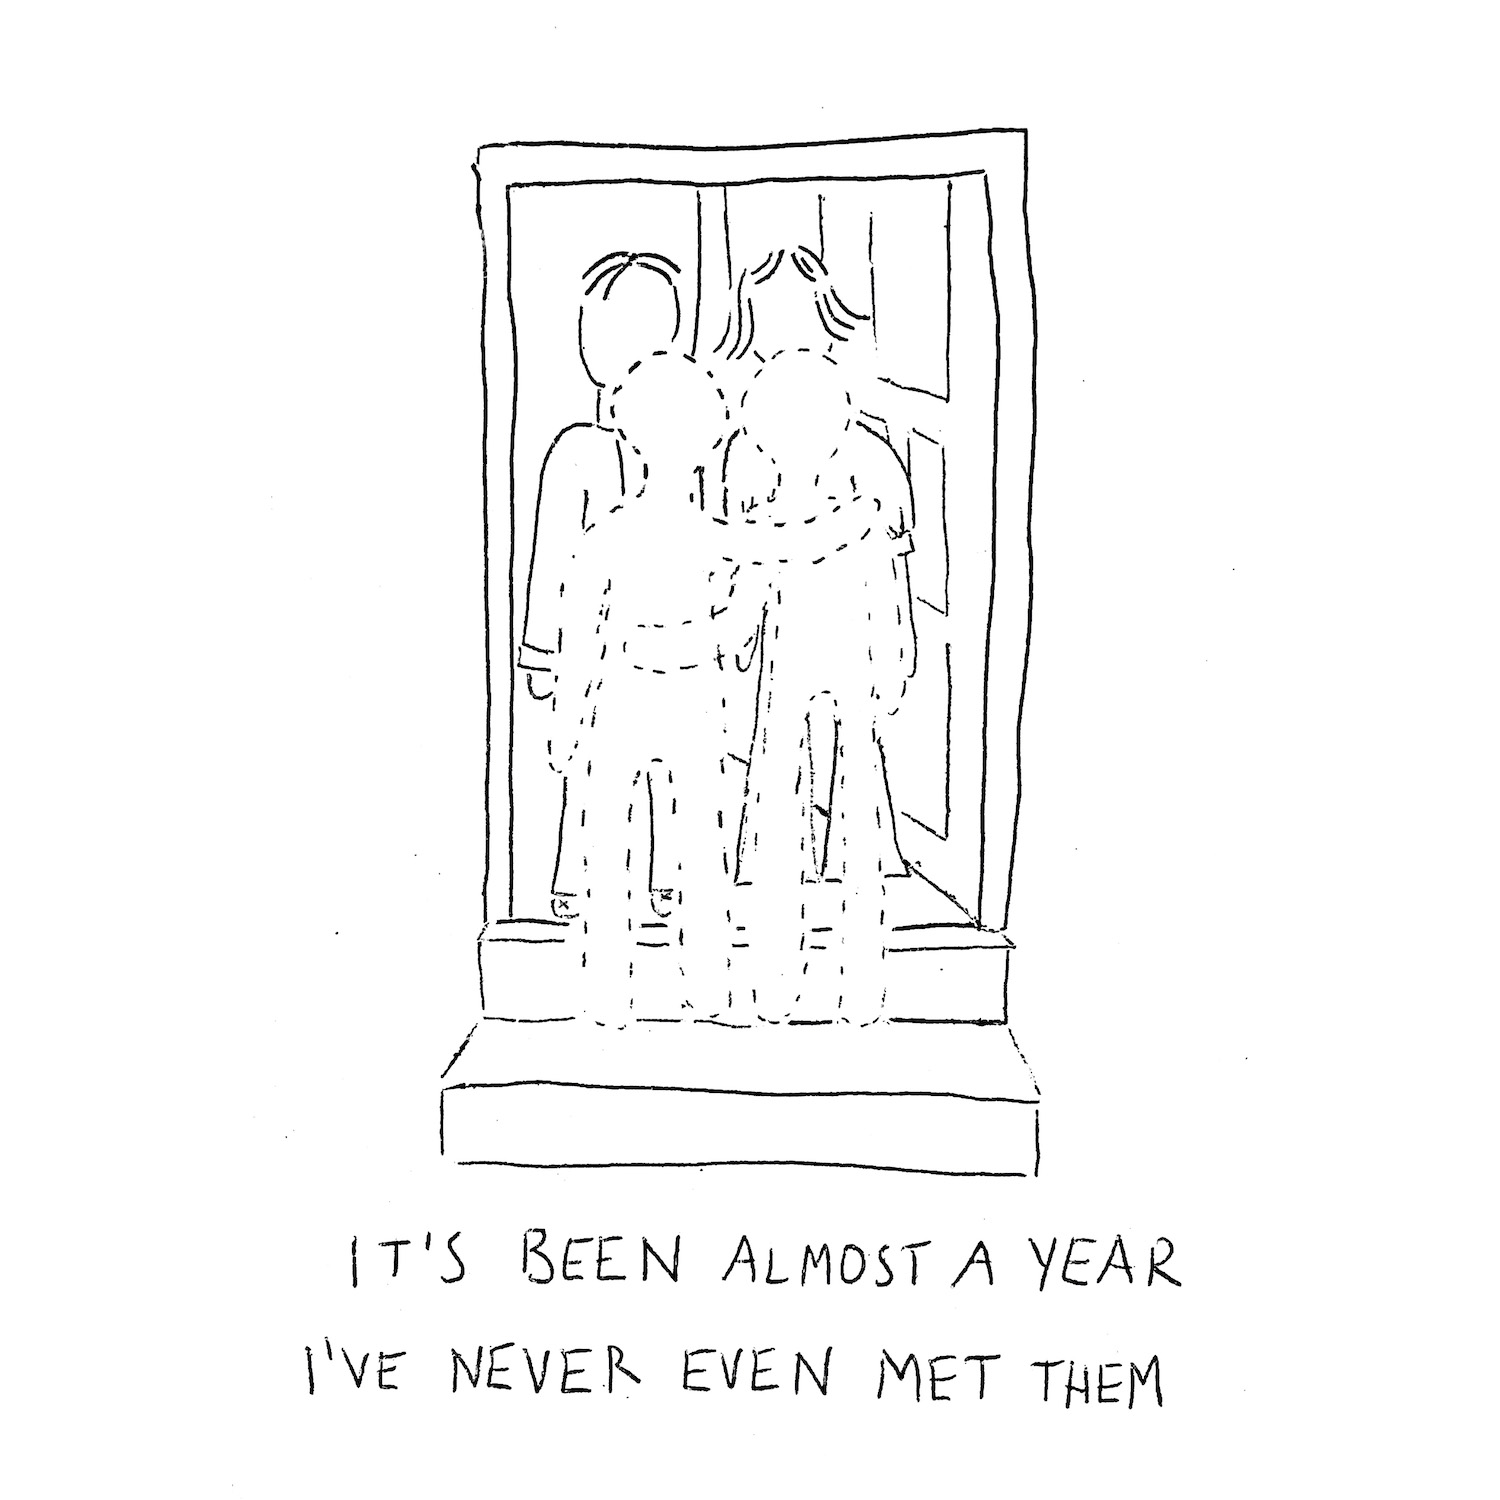 IT'S BEEN ALMOST A YEAR
I'VE NEVER EVEN MET THEM